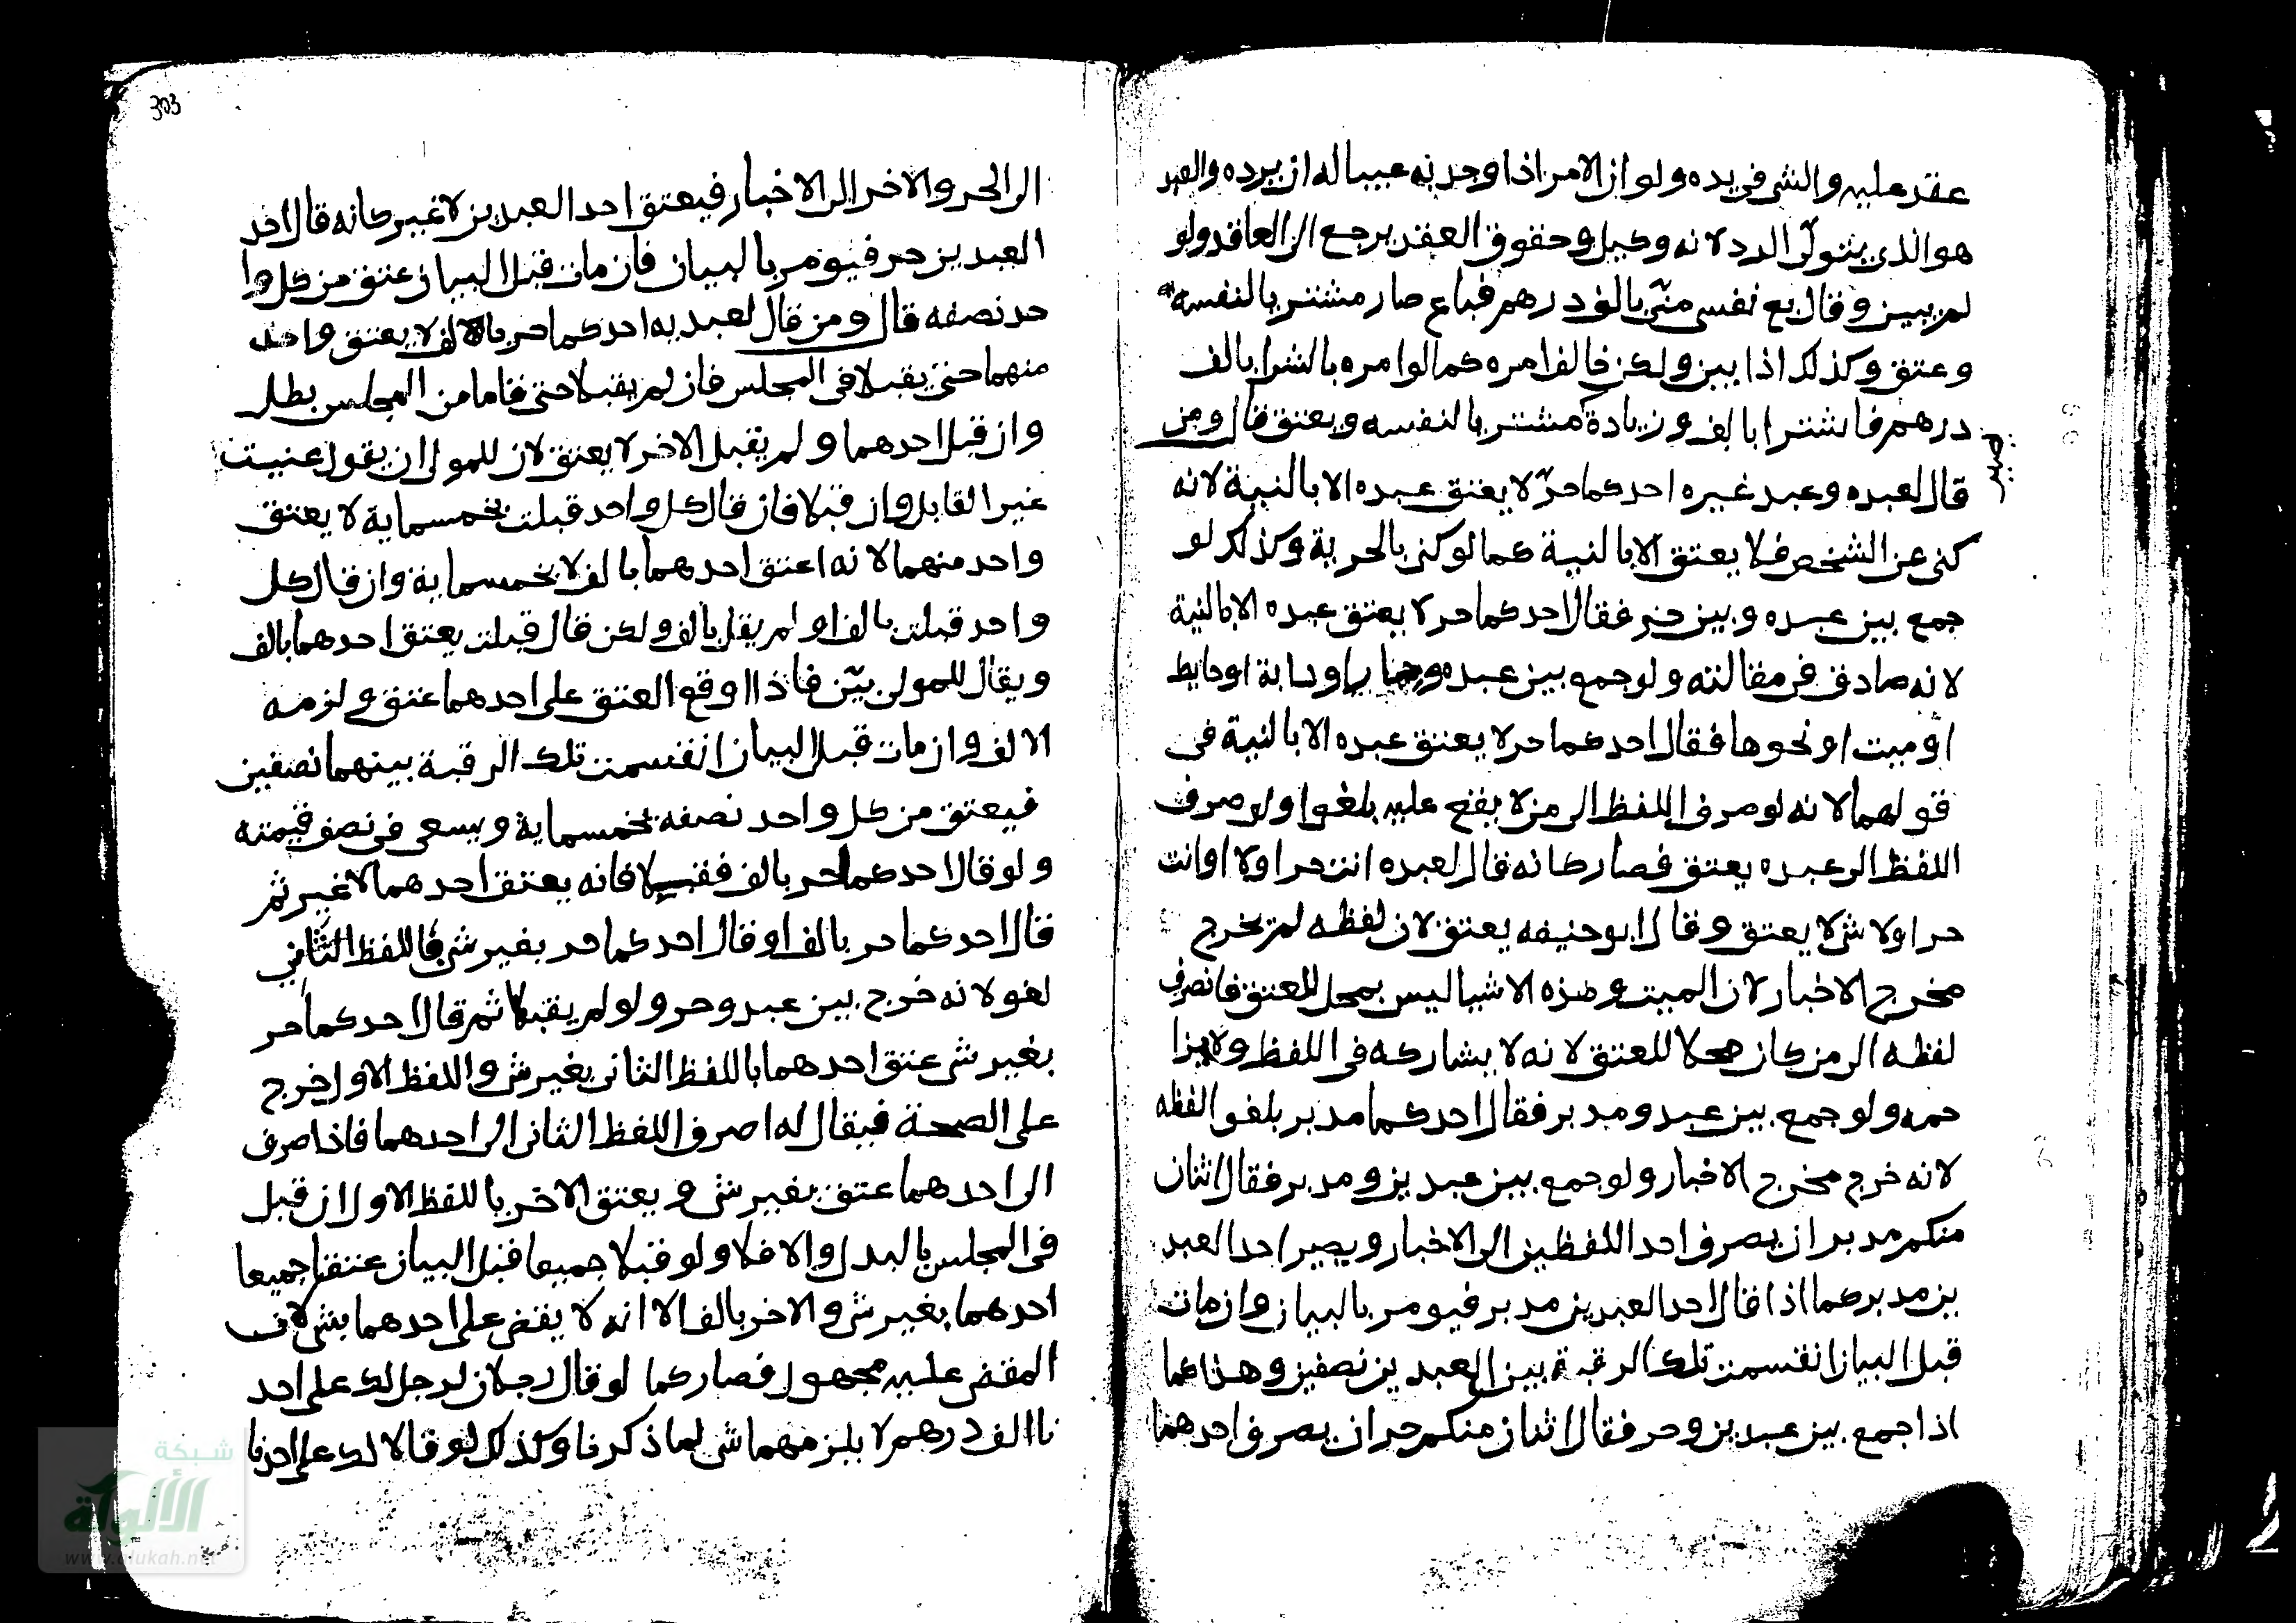 عقد عليه والشى فى يده ولو ان الامر اذا وجد به عيبا له ان يرده والعبد
هو الذى يتولى الرد لانه وكيل وحقوق العقد يرجع الى العاقد ولو
لم يبين وقال بع نفسى منى بالف درهم فباع صار مشتريا لنفسه
وعتق وكذلك اذا بين ولكن خالف امره كما لو امره بالشرا بالف
درهم فاشترا بالف وزيادة مشتريا لنفسه ويعتق قال ومن
يصير
قال لعبده وعبد غيره احدكما حر لا يعتق عبده الا بالنية لانه
كنى عن الشخص فلا يعتق الا بالنية كما لو كنى بالحرية وكذلك لو
جمع بين عبده وبين حر فقال احدكما حر لا يعتق عبده الا بالنية
لانه صادق فى مقالته ولو جمع بين عبده او دابة او حايط
او ميت او نحوها فقال احدكما حر لا يعتق عبده الا بالنية فى
قولهما لانه لو صرف اللفظ الى من لا يقع عليه يلغوا ولو صرف
اللفظ الى عبده يعتق فصار كانه قال لعبده انت حر اولا او انت
حر اولا شى لا يعتق وقال ابو حنيفه يعتق لان لفظه لم يخرج
مخرج الاخبار لان الميت وهذه الاشيا ليس بمحل للعتق فانصرف
لفظه الى من كان محلا للعتق لانه لا يشاركه فى اللفظ ولا يزا
حمه ولو جمع بين عبد ومدبر فقال احدكما مدبر يلغوا لفظه
لانه خرج مخرج الاخبار ولو جمع بين عبدين ومدبر فقال اثنان
منكم مدبران يصرف احد اللفظين الى الاخبار ويصير احد العبد
ين مدبر كما اذا قال احد العبدين مدبر فيومر بالبيان وان مات
قبل البيان انقسمت تلك الرقبة بين العبدين نصفين وهذا كما
اذا جمع بين عبدين وحر فقال اثنان منكم حران يصرف احدهما
303
الى الحر والاخر الى الاخبار فيعتق احد العبدين لا غير كانه قال احد
العبدين حر فيومر بالبيان فان مات قبل البيان عتق من كل وا
حد نصفه قال ومن قال لعبديه احدكما حر بالف لا يعتق واحد
منهما حتى يقبلا فى المجلس فان لم يقبلا حتى قاما من المجلس بطل
وان قبل احدهما ولم يقبل الاخر لا يعتق لان للمولى ان يقول عنيت
غير القابل وان قبلا فان قال كل واحد قبلت بخمسماية لا يعتق
واحد منهما لانه اعتق احدهما بالف لا بخمسماية وان قال كل
واحد قبلت بالف او لم يقل بالف ولكن قال قبلت يعتق احدهما بالف
ويقال للمولى بين فاذا اوقع العتق على احدهما عتق ولزمه
الالف وان مات قبل البيان انقسمت تلك الرقبة بينهما نصفين
فيعتق من كل واحد نصفه بخمسماية ويسعى فى نصف قيمته
ولو قال احدكما حر بالف فقبلا فانه يعتق احدهما لا غير ثم
قال احدكما حر بالف او قال احدكما حر بغير شى فاللفظ الثانى
لغو لانه خرج بين عبد وحر ولو لم يقبلا ثم قال احدكما حر
بغير شى عتق احدهما باللفظ الثانى بغير شى واللفظ الاول خرج
على الصحة فيقال له اصرف اللفظ الثانى الى احدهما فاذا صرف
الى احدهما عتق بغير شى ويعتق الاخر باللفظ الاول ان قبل
فى المجلس بالبدل والا فلا ولو قبلا جميعا قبل البيان عتقا جميعا
احدهما بغير شى والاخر بالف الا انه لا يقضى على احدهما بشى لان
المقضى عليه مجهول فصار كما لو قال رجلان لرجل لك على احد
نا الف درهم لا يلزمهما شى لما ذكرنا وكذلك لو قالا لك على احدنا
شبكة
الألوكة
www.alukah.net